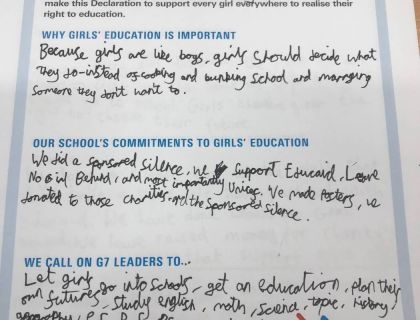 make this Declaration to support every girl everywhere to realise their
right to education.
WHY GIRLS' EDUCATION IS IMPORTANT
Because girls are like boys, girls should decide what
They do-instead of cooking and bunking School and marrying
Someone they don't want to.
OUR SCHOOL'S COMMITMENTS TO GIRLS' EDUCATION
We did a sponsored silence, we support Educaid, Leave
No Girl Behind, and most importantly Unicef. We made Posters, we
donated to those charities and the sponsored silence.
WE CALL ON G7 LEADERS TO...
Let girls go into schools, get an education, plan their
own futures, study english, math, science, topic, history,
geography, P.E,